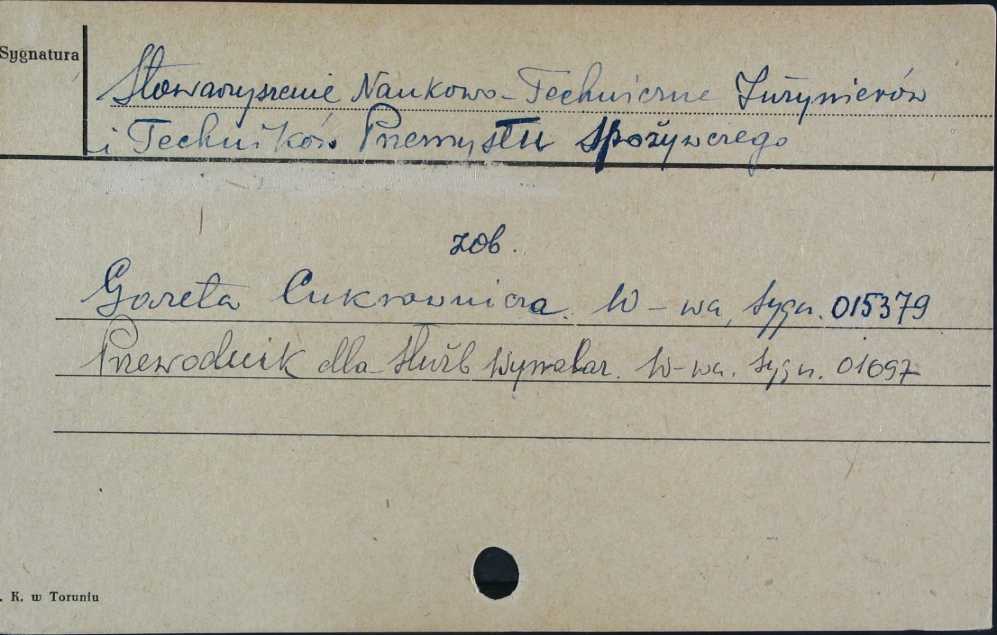 Sygnatura
Stowarzyszenie Naukowo-Techniczne Inżynierów
i Techników Przemysłu Spożywczego
zob.
Gazeta Cukrownicza. W-wa, sygn. 015379
Przewodnik dla służb wynalaz. W-wa. sygn. 01697
. K. w Toruniu